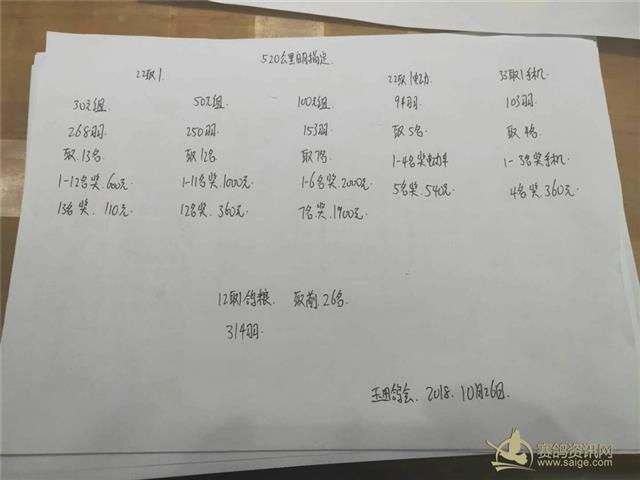 520公里明指定
22取1. 22取1电动 33取1手机
30元组 50元组. 100元组. 94羽. 103羽
268羽 250羽 153羽 取5名 取4名
取13名 取12名 取7名 1-4名奖电动车 1-3名奖手机
1-12名奖600元 1-11名奖1000元. 1-6名奖2000元 5名奖.540元. 4名奖.360元.
13名奖.110元 12名奖.360元. 7名奖.1900元.
12取1鸽粮. 取前.26名.
314羽.
玉田鸽会.2018.10月26日.
赛鸽资讯网
www.saige.com